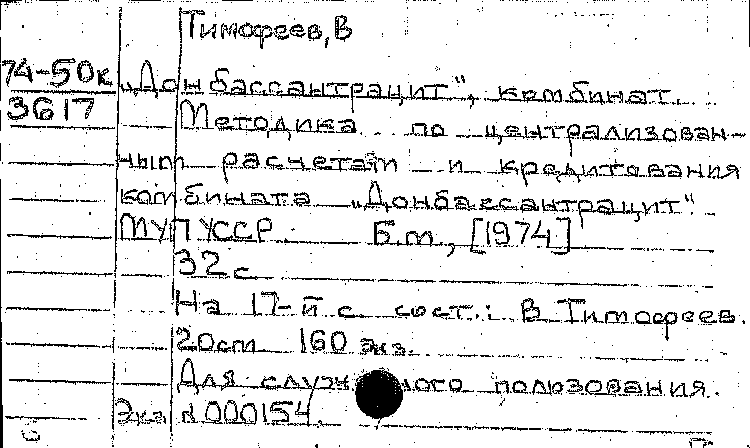 Тимофеев, В
74-50к „Донбассантрацит", комбинат.
3617 Методика по централизован-
ным расчетам и кредитования
комбината „Донбассантрацит".
МУП УССР. Б.м, [1974]
32 с
На 17-й с сост.: В Тимофеев.
20см 160 экз.
Для служ ного пользования.
Экз 000154.